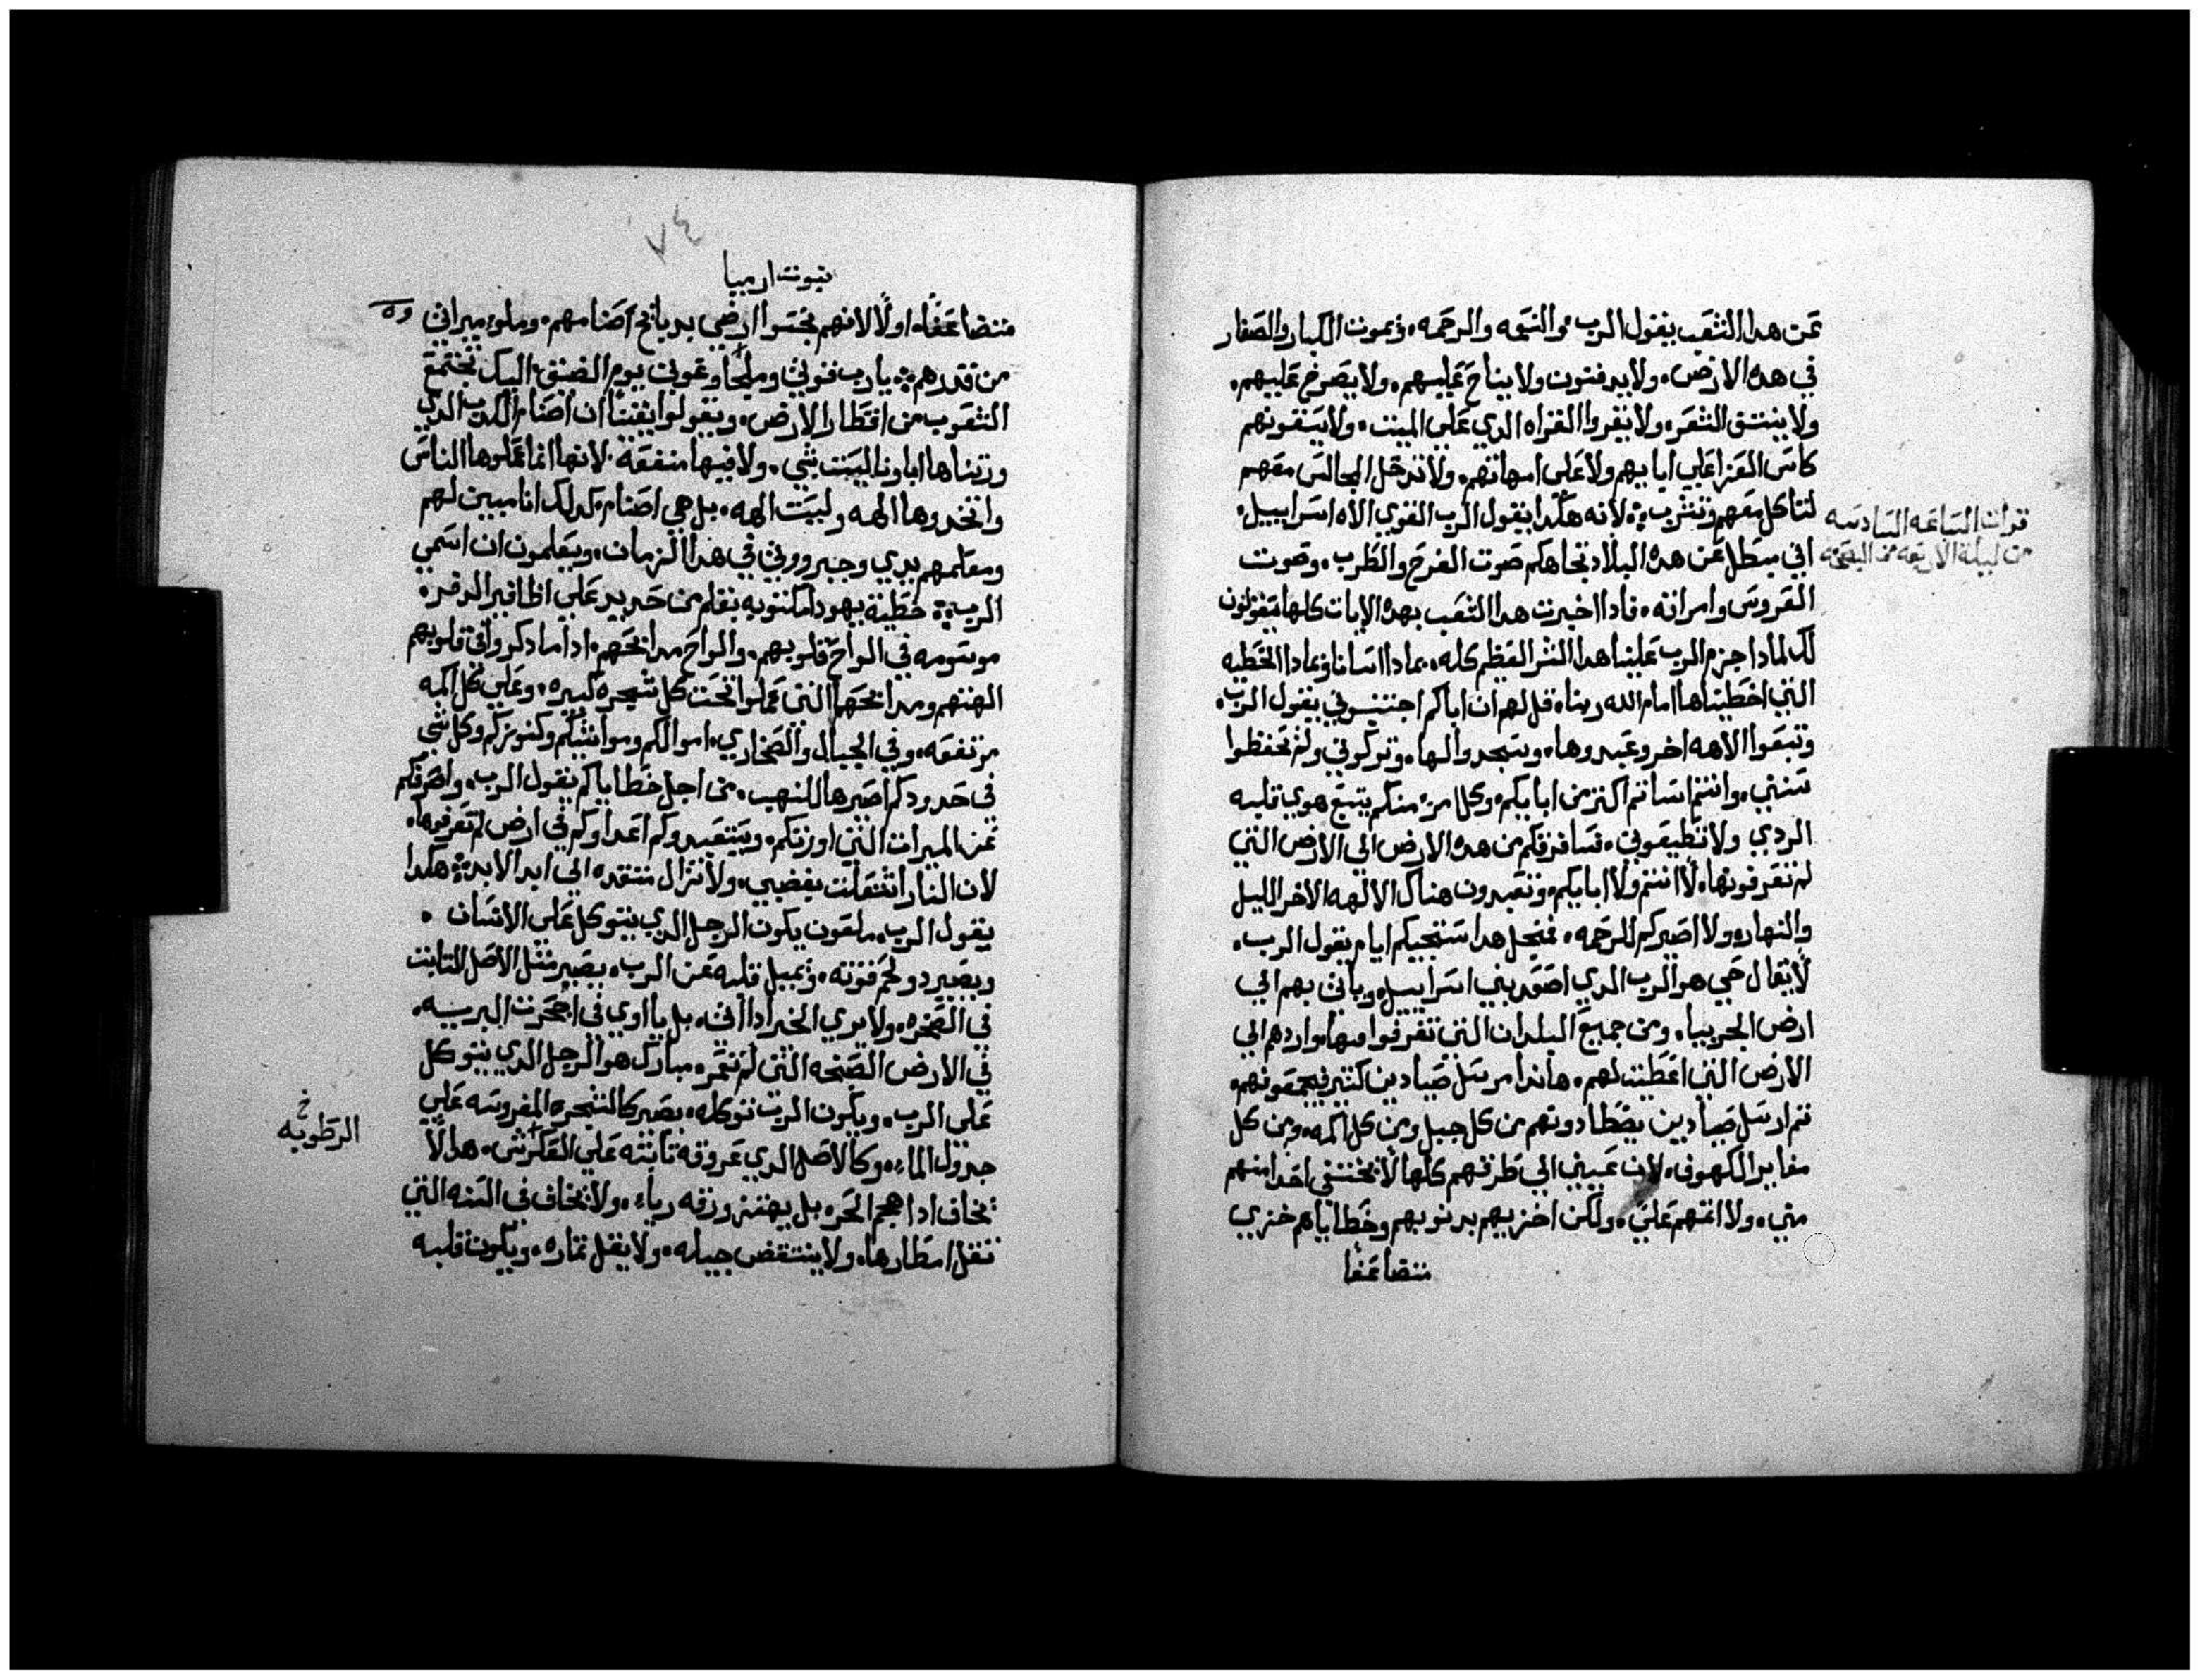 عن هدا الشعب يقول الرب. والنعمه والرحمه. ويموت الكبار والصغار
في هده الارض. ولا يدفنون ولا يناح عليهم. ولا يصرخ عليهم.
ولا ينتق الشعر. ولا يقروا القراه الدي علي الميت. ولا يسقونهم
كاس العزا علي ابايهم ولا علي امهاتهم. ولا تدخل المجالس معهم
لتاكل معهم وتشرب لانه هكدا يقول الرب القوي الاه اسراييل.
قرات الساعه السادسه
من ليلة الاربعه من البصخه
اني مبطل عن هده البلاد تجاهكم صوت الفرح والطرب. وصوت
العروس وامراته. فادا اخبرت هدا الشعب بهده الايات كلها سيقولون
لك لمادا جزم الرب علينا هدا الشر العظيم كله. بمادا اسانا وبمادا الخطيه
التي اخطيناها امام الله ربنا. قل لهم ان اباكم اجتنبوني يقول الرب.
وتبعوا الاهه اخر وعبدوها. وسجدوا لها. وتركوني ولم تحفظوا
سنتي. وانتم اساتم اكتر من ابايكم. وكل امرء منكم يتبع هوي قلبه
الردي ولا تطيعوني. فسافرقكم من هده الارض الي الارض التي
لم تعرفونها. لا انتم ولا ابايكم. وتعبدون هناك الالهه الاخر الليل
والنهار. ولا اصيركم للرحمه. فمنجل هدا ستجيكم ايام يقول الرب.
لا يقال حي هو الرب الدي اصعد بني اسراييل. وياتي بهم الي
ارض الجربيا. ومن جميع البلدان التي تفرقوا فيها. واردهم الي
الارض التي اعطيت لهم. هاندا مرسل صيادين كتير فيجمعونهم.
تم ارسل صيادين يصطادونهم من كل جبل ومن كل اكمه. ومن كل
مغاير الكهوف. لان عيني الي طرقهم كلها لا يختفي احدا منهم
مني. ولا اتمهم علي. ولكن اخزيهم بدنوبهم وخطاياهم خزي
متضاعفا
٧٤
نبوت ارميا
متضاعفا. اولا لانهم نجسوا ارضي بدبايح اصنامهم. وملوء ميراتي
من قدرهم يارب قوتي وملجا وعوني يوم الضيق. اليك تجتمع
الشعوب من اقطار الارض. ويقولوا يقينا ان اصنام الكدب الدي
ورتناها اباونا ليست شي. ولا فيها منفعه. لانها انما عملوها الناس
واتخدوها الهه وليست الهه. بل هي اصنام. كدلك انا مبين لهم
ومعلمهم يدي وجبرووتي في هدا الزمان. ويعلمون ان اسمي
الرب خطية يهودا مكتوبه بقلم من حديد علي اظافير الدفر.
موسومه في الواح قلوبهم. والواح مدابحهم. ادا ما دكروا في قلوبهم
الهتهم ومدابحها التي عملوا تحت كل شجره كبيره. وعلي كل اكمه
مرتفعه. وفي الجبال والصخاري. اموالكم ومواشيكم وكنوزكم وكل شي
في حدودكم اصيرها للنهب. من اجل خطاياكم يقول الرب. واصرفكم
عن الميرات التي اورتكم. ويستعبدوكم اعداوكم في ارض لم تعرفوها.
لان النار اشتعلت بغضبي. ولا تزال متقده الي ابد الابد هكدا
يقول الرب. ملعون يكون الرجل الدي يتوكل علي الانسان.
ويصير دو لحم قوته. ويميل قلبه عن الرب. يصير متل الاصل التابت
في الصخره. ولا يري الخير ادا اتي. بل ياوي في اجحرت البريه.
في الارض الصبخه التي لم تعمر. مبارك هو الرجل الدي يتوكل
علي الرب. ويكون الرب توكله. يصير كالشجره المغروسه علي
جدول الماء. وكالاصل الدي عروقه تابته علي العكرش. هدا لا
خ
الرطوبه
يخاف ادا هجم الحر. بل يهتز ورقه رياء. ولا يخاف في السنه التي
تقل امطارها. ولا ينتقض جيله. ولا يقل تماره. ويكون قلبه